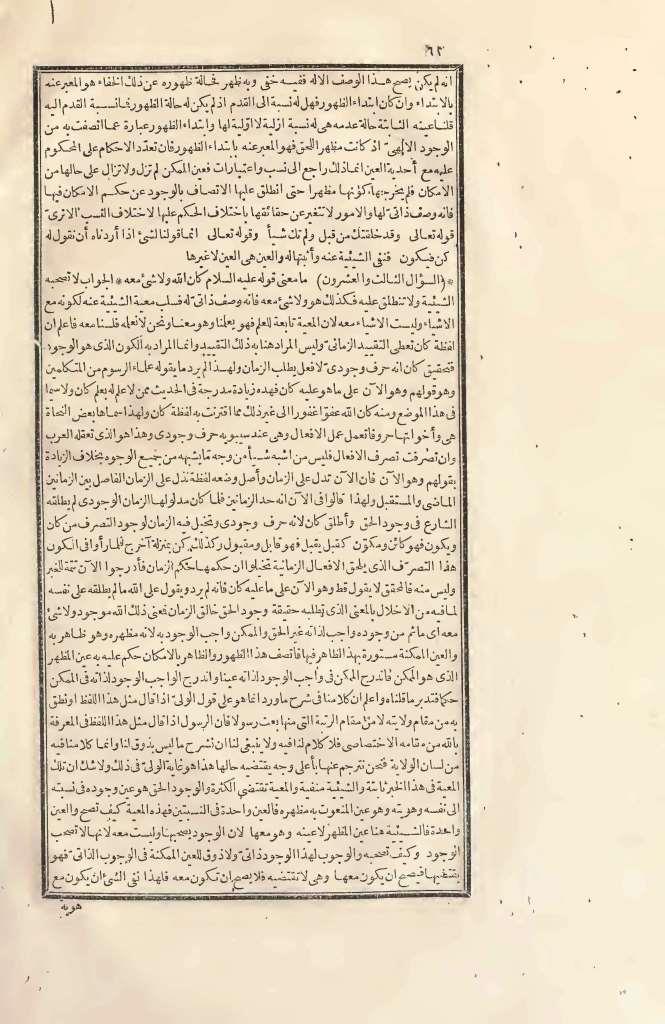 ٦٢
انه لم يكن يصح هذا الوصف الا له ففيه خفي وبه ظهر فحالة ظهوره عن ذلك الخفاء هو المعبر عنه
بالابتداء وان كان ابتداء الظهور فهل له نسبة الى القدم اذ لم يكن له حالة الظهور فما نسبة القدم اليه
قلنا عينه الثابتة حالة عدمه هي له نسبة ازلية لا اولية لها وابتداء الظهور عبارة عما اتصفت به من
الوجود الالهي اذ كانت مظهرا للحق فهو المعبر عنه بابتداء الظهور فان تعدد الاحكام على المحكوم
عليه مع أحدية العين انما ذلك راجع الى نسب واعتبارات فعين الممكن لم تزل ولا تزال على حالها من
الامكان فلم يخرجها كونها مظهرا حتى انطلق عليها الاتصاف بالوجود عن حكم الامكان فيها
فانه وصف ذاتي لها والامور لا تتغير عن حقائقها باختلاف الحكم عليها لاختلاف النسب الا ترى
قوله تعالى وقد خلقتك من قبل ولم تك شيأ وقوله تعالى انما قولنا لشئ اذا أردناه أن نقول له
كن فيكون فنفى الشيئية عنه وأثبتها له والعين هي العين لا غيرها
* (السؤال الثالث والعشرون) ما معنى قوله عليه السلام كان الله ولا شئ معه * الجواب لا تصحبه
الشيئية ولا تنطلق عليه فكذلك هو ولا شئ معه فانه وصف ذاتي له فسلب معية الشيئية عنه لكونه مع
الاشياء وليست الاشياء معه لان المعية تابعة للعلم فهو يعلمنا وهو معنا ونحن لا نعلمه فلسنا معه فاعلم ان
لفظة كان تعطي التقييد الزماني وليس المراد هنا به ذلك التقييد وانما المراد به الكون الذي هو الوجود
فتحقيق كان انه حرف وجودي لا فعل يطلب الزمان ولهذا لم يرد ما يقوله علماء الرسوم من المتكلمين
وهو قولهم وهو الآن على ما هو عليه كان فهذه زيادة مدرجة في الحديث ممن لا علم له بعلم كان ولا سيما
في هذا الموضع ومنه كان الله عفوا غفورا الى غير ذلك مما اقترنت به لفظة كان ولهذا سماها بعض النحاة
هي وأخواتها حروفا تعمل عمل الافعال وهي عند سيبويه حرف وجودي وهذا هو الذي تعقله العرب
وان تصرفت تصرف الافعال فليس من اشبه شيأ من وجه ما يشبهه من جميع الوجوه بخلاف الزيادة
بقولهم وهو الآن فان الآن تدل على الزمان وأصل وضعه لفظة تدل على الزمان الفاصل بين الزمانين
الماضي والمستقبل ولهذا قالوا في الآن انه حد الزمانين فلما كان مدلولها الزمان الوجودي لم يطلقه
الشارع في وجود الحق وأطلق كان لانه حرف وجودي وتخيل فيه الزمان لوجود التصرف من كان
ويكون فهو كائن ومكون كقبل يقبل فهو قابل ومقبول وكذلك كن بمنزلة آخرج فلما رأوا في الكون
هذا التصرف الذي يلحق الافعال الزمانية تخيلوا ان حكمها حكم الزمان فأدرجوا الآن تتمة للخبر
وليس منه فالمحقق لا يقول قط وهو الآن على ما عليه كان فانه لم يرد ويقول على الله ما لم يطلقه على نفسه
لما فيه من الاخلال بالمعنى الذي تطلبه حقيقة وجود الحق خالق الزمان فمعنى ذلك الله موجود ولا شئ
معه أي ما ثم من وجوده واجب لذاته غير الحق والممكن واجب الوجود به لانه مظهره وهو ظاهر به
والعين الممكنة مستورة بهذا الظاهر فيها فاتصف هذا الظهور والظاهر بالامكان حكم عليه به عين المظهر
الذي هو الممكن فاندرج الممكن في واجب الوجود لذاته عينا واندرج الواجب الوجود لذاته في الممكن
حكما فتدبر ما قلناه واعلم ان كلامنا في شرح ما ورد انما هو على قول الولي اذا قال مثل هذا اللفظ او نطق
به من مقام ولايته لا من مقام الرتبة التي منها بعث رسولا فان الرسول اذا قال مثل هذا اللفظ في المعرفة
بالله من مقامه الاختصاصي فلا كلام لنا فيه ولا ينبغي لنا ان نشرح ما ليس بذوق لنا وانما كلامنا فيه
من لسان الولاية فنحن نترجم عنها بأعلى وجه يقتضيه حالها هذا هو غاية الولي في ذلك ولا شك ان تلك
المعية في هذا الخبر ثابتة والشيئية منفية والمعية تقتضي الكثرة والوجود الحق هو عين وجوده في نسبته
الى نفسه وهويته وهو عين المنعوت به مظهره فالعين واحدة في النسبتين فهذه المعية كيف تصح والعين
واحدة فالشيئية هنا عين المظهر لا عينه وهو معها لان الوجود يصحبها وليست معه لانها لا تصحب
الوجود وكيف تصحبه والوجوب لهذا الوجود ذاتي ولا ذوق للعين الممكنة في الوجوب الذاتي فهو
يقتضيها فيصح ان يكون معها وهي لا تقتضيه فلا يصح ان تكون معه فلهذا نفى الشئ ان يكون مع
هوية